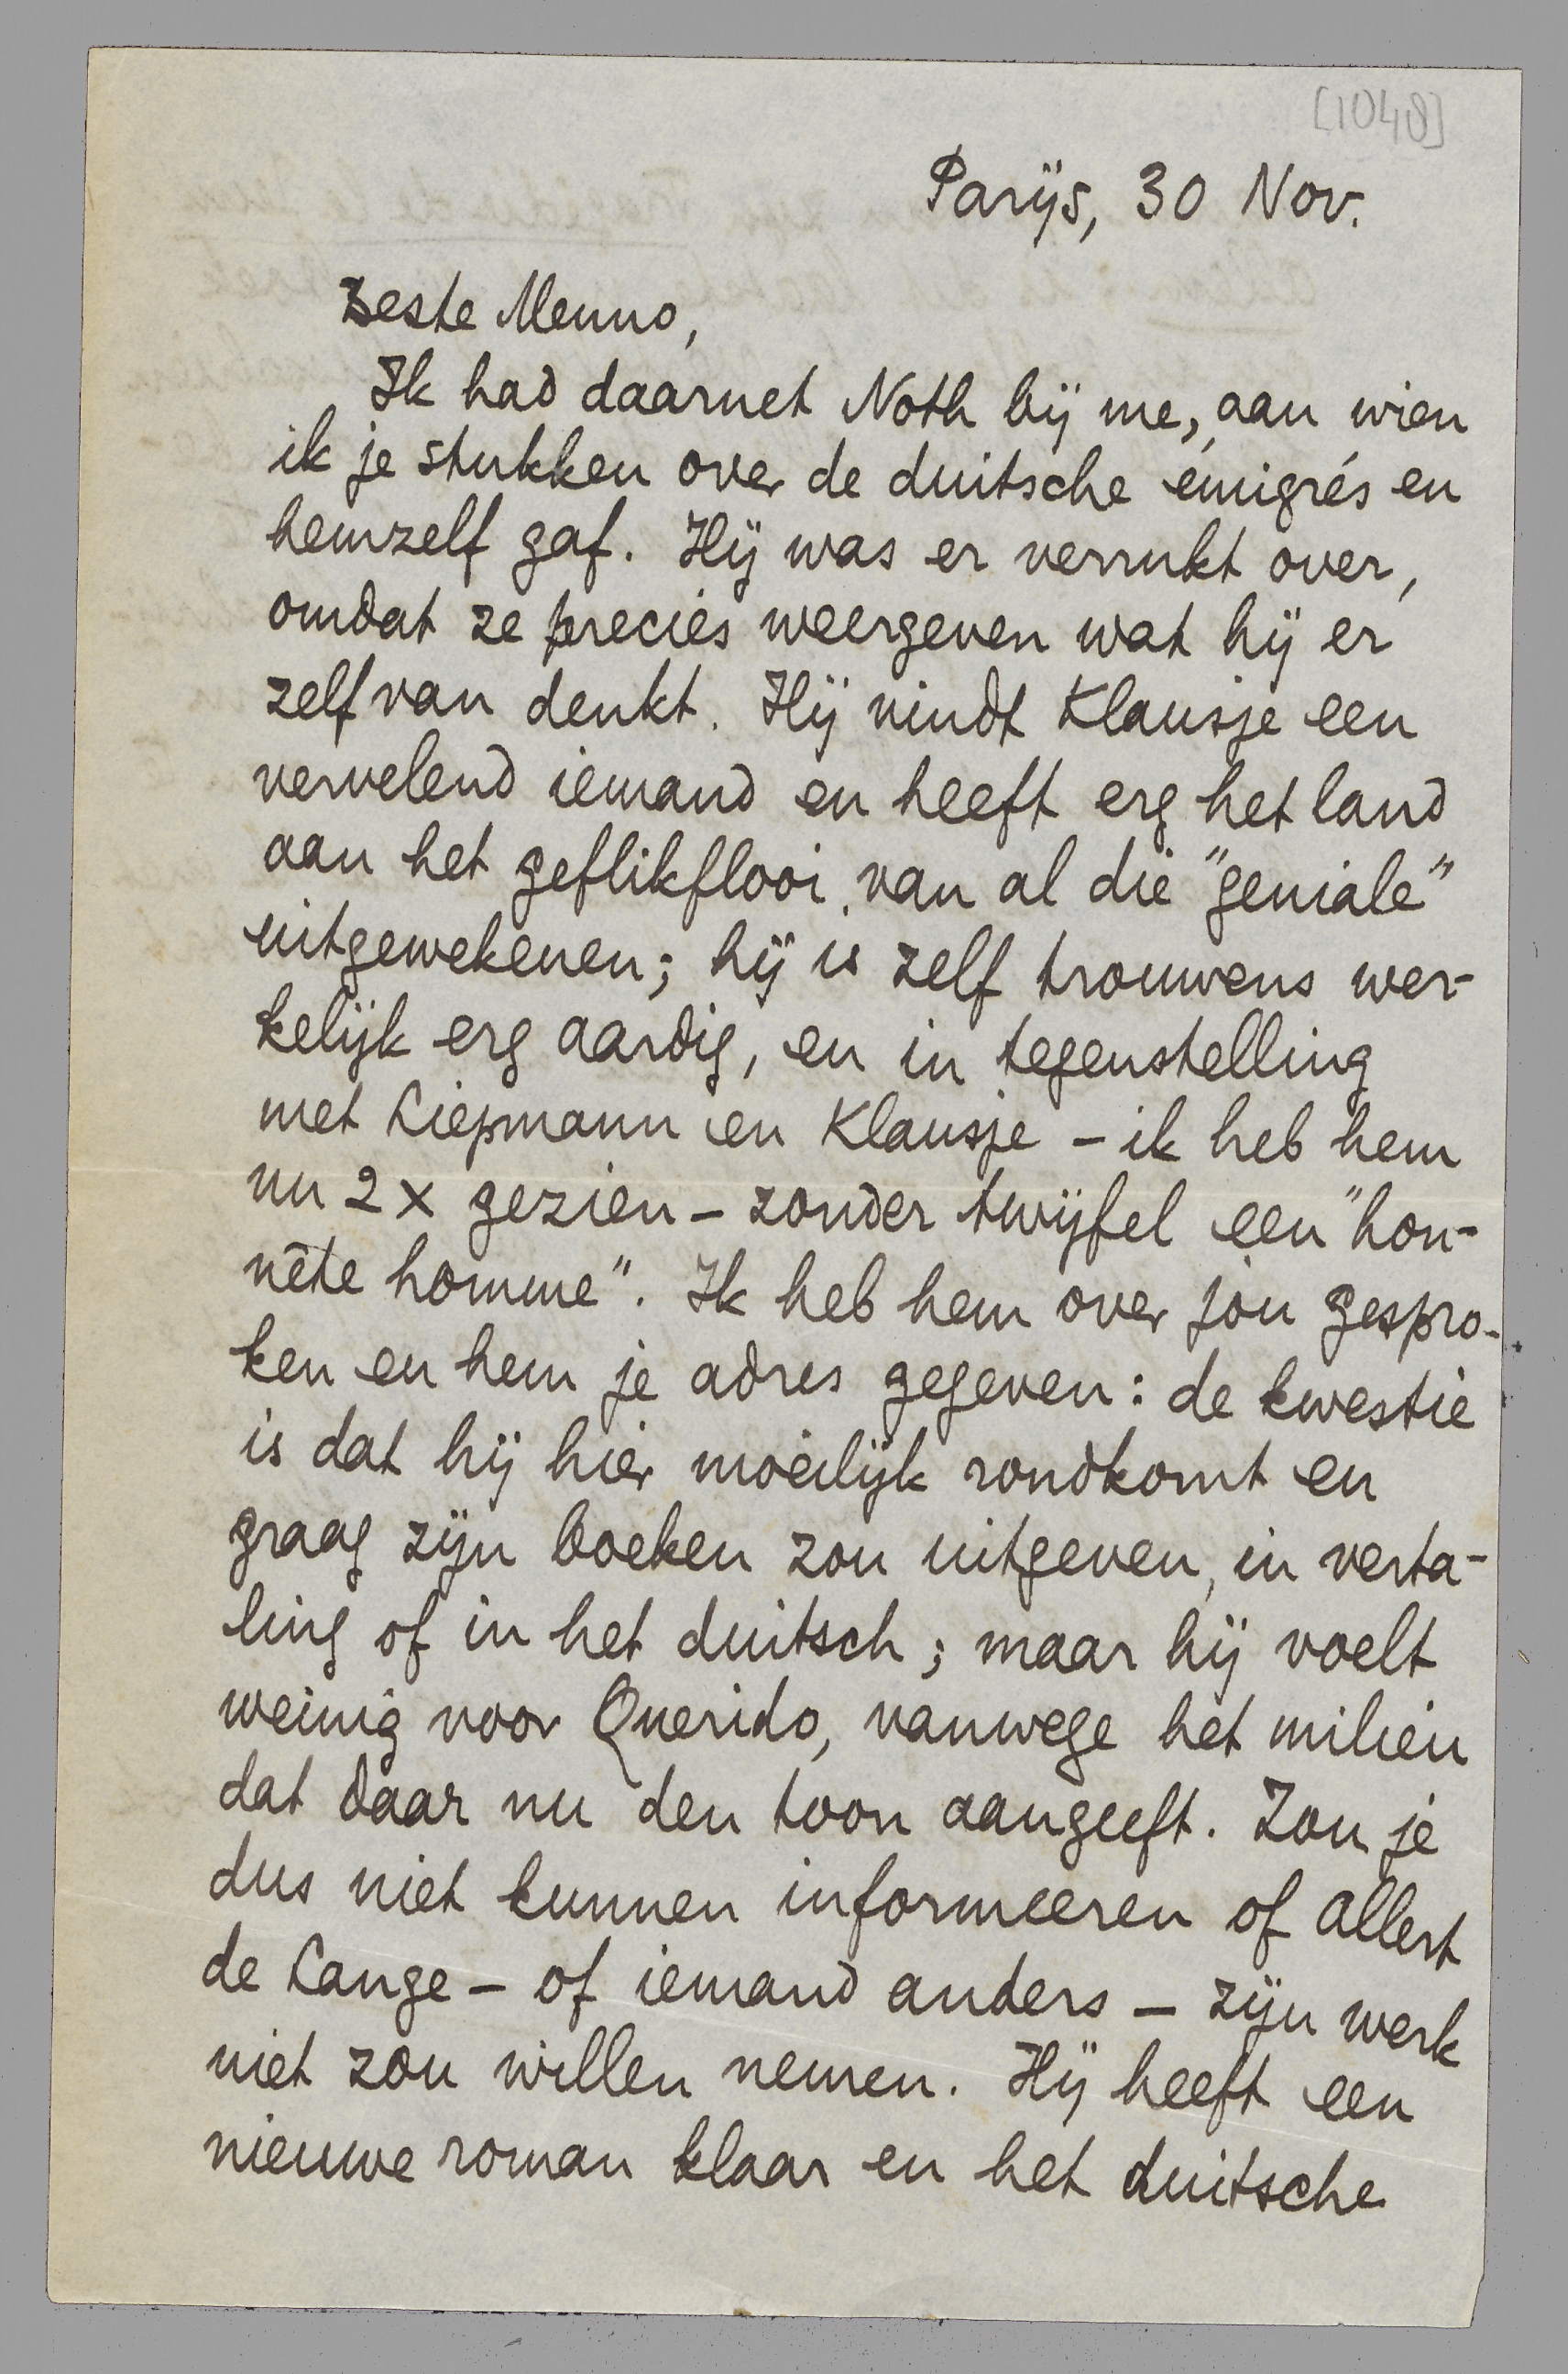 [1048]
Parijs, 30 Nov.
Beste Menno,
Ik had daarnet Noth bij me, aan wien
ik je stukken over de duitsche émigrés en
hemzelf gaf. Hij was er verrukt over,
omdat ze precies weergeven wat hij er
zelf van denkt. Hij vindt Klausje een
vervelend iemand en heeft erg het land
aan het geflikflooi van al die "geniale"
uitgewekenen; hij is zelf trouwens wer-
kelijk erg aardig, en in tegenstelling
met Liepmann en Klausje – ik heb hem
nu 2 x gezien – zonder twijfel een "hon-
nête homme". Ik heb hem over jou gespro-
ken en hem je adres gegeven: de kwestie
is dat hij hier moeilijk rondkomt en
graag zijn boeken zou uitgeven, in verta-
ling of in het duitsch; maar hij voelt
weinig voor Querido, vanwege het milieu
dat daar nu den toon aangeeft. Zou je
dus niet kunnen informeeren of Allert
de Lange – of iemand anders – zijn werk
niet zou willen nemen. Hij heeft een
nieuwe roman klaar en het duitsche